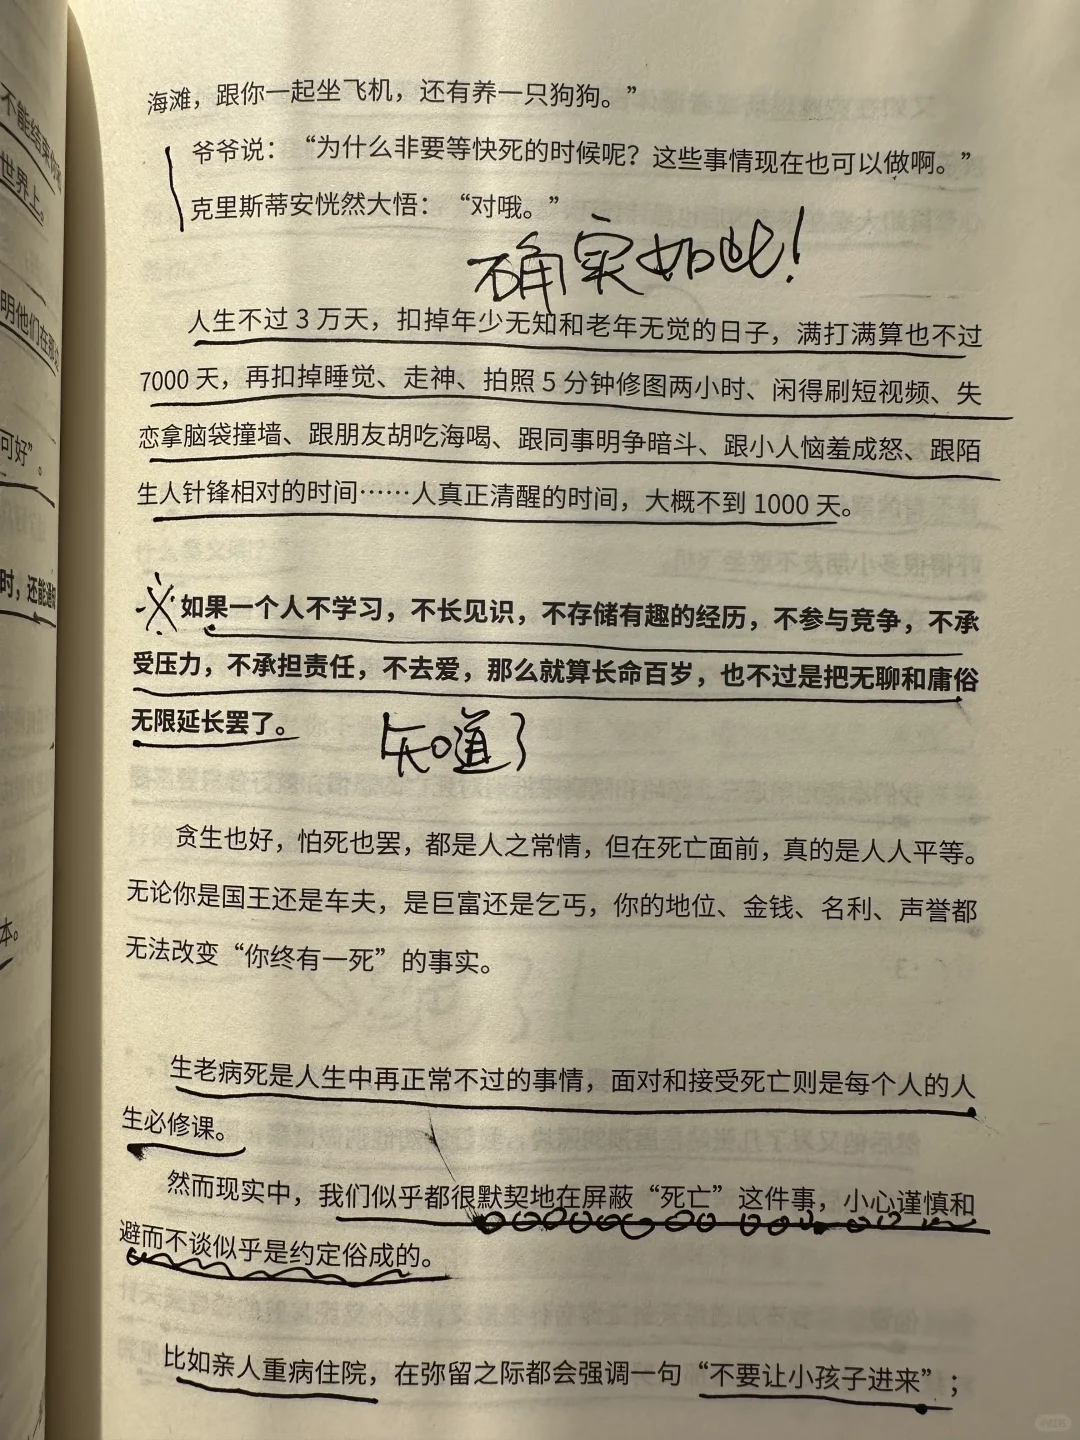 海滩，跟你一起坐飞机，还有养一只狗狗。”
爷爷说：“为什么非要等快死的时候呢？这些事情现在也可以做啊。”
克里斯蒂安恍然大悟：“对哦。”
确实如此！
人生不过 3 万天，扣掉年少无知和老年无觉的日子，满打满算也不过
7000 天，再扣掉睡觉、走神、拍照 5 分钟修图两小时、闲得刷短视频、失
恋拿脑袋撞墙、跟朋友胡吃海喝、跟同事明争暗斗、跟小人恼羞成怒、跟陌
生人针锋相对的时间……人真正清醒的时间，大概不到 1000 天。
如果一个人不学习，不长见识，不存储有趣的经历，不参与竞争，不承
受压力，不承担责任，不去爱，那么就算长命百岁，也不过是把无聊和庸俗
无限延长罢了。
知道了
贪生也好，怕死也罢，都是人之常情，但在死亡面前，真的是人人平等。
无论你是国王还是车夫，是巨富还是乞丐，你的地位、金钱、名利、声誉都
无法改变“你终有一死”的事实。
生老病死是人生中再正常不过的事情，面对和接受死亡则是每个人的人
生必修课。
然而现实中，我们似乎都很默契地在屏蔽“死亡”这件事，小心谨慎和
避而不谈似乎是约定俗成的。
比如亲人重病住院，在弥留之际都会强调一句“不要让小孩子进来”；
不能结束你
世界上。
明他们在那
可好”。
时，还能
本。